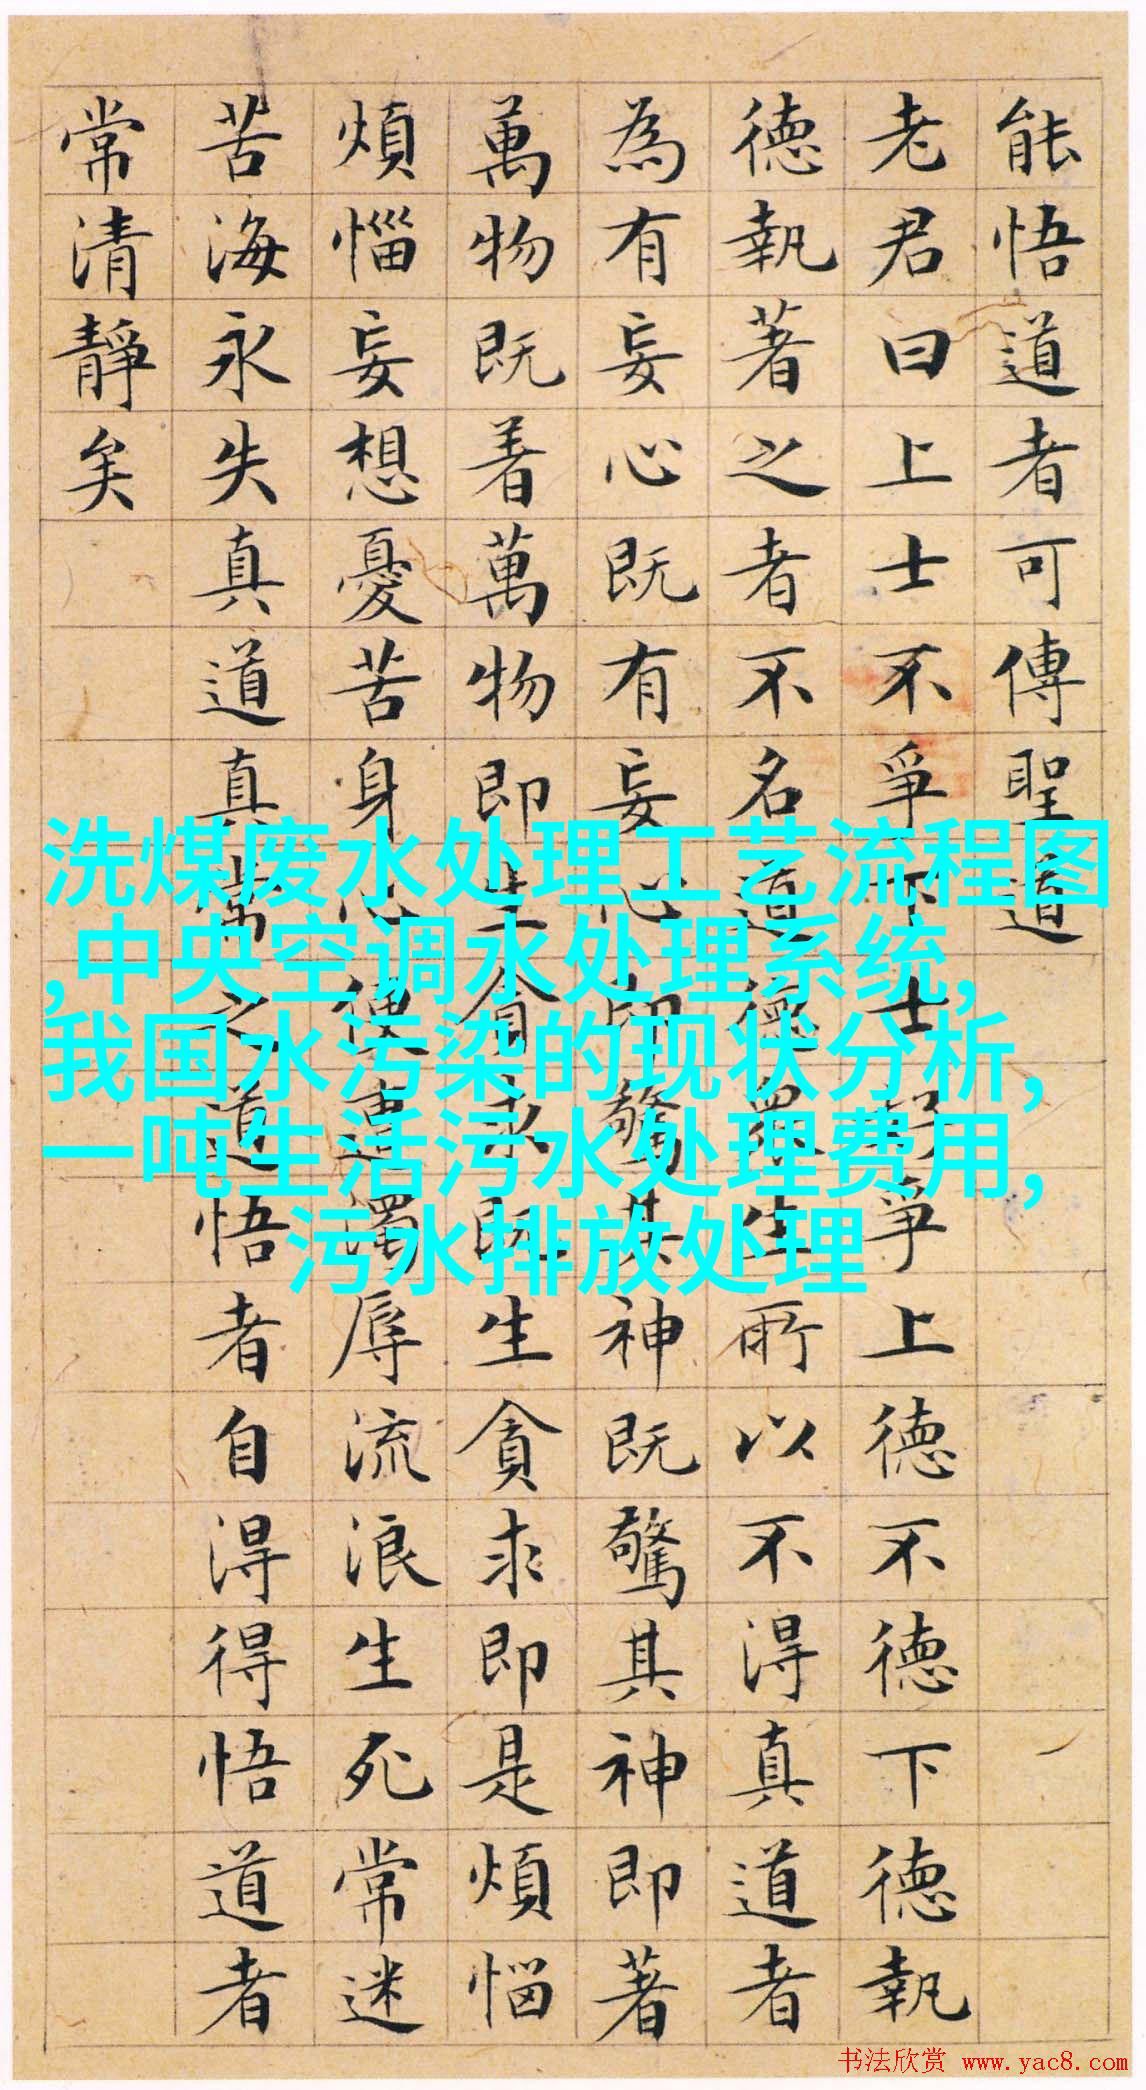 能悟道者可傳聖道
老君曰上士不爭下士好爭上德不德下德執
德執著之者不名道德眾生所以不得真道者
為有妄心既有妄心即驚其神既驚其神即著
萬物既着萬物即生貪求既生貪求即是煩惱
煩惱妄想憂苦身心便遭濁辱流浪生死常迷
苦海永失真道真常之道悟者自得得悟道者
常清靜矣
洗煤废水处理工艺流程图
,中央空调水处理系统,
我国水污染的现状分析,
一吨生活污水处理费用,
污水排放处理
书法欣赏 www.yac8.com